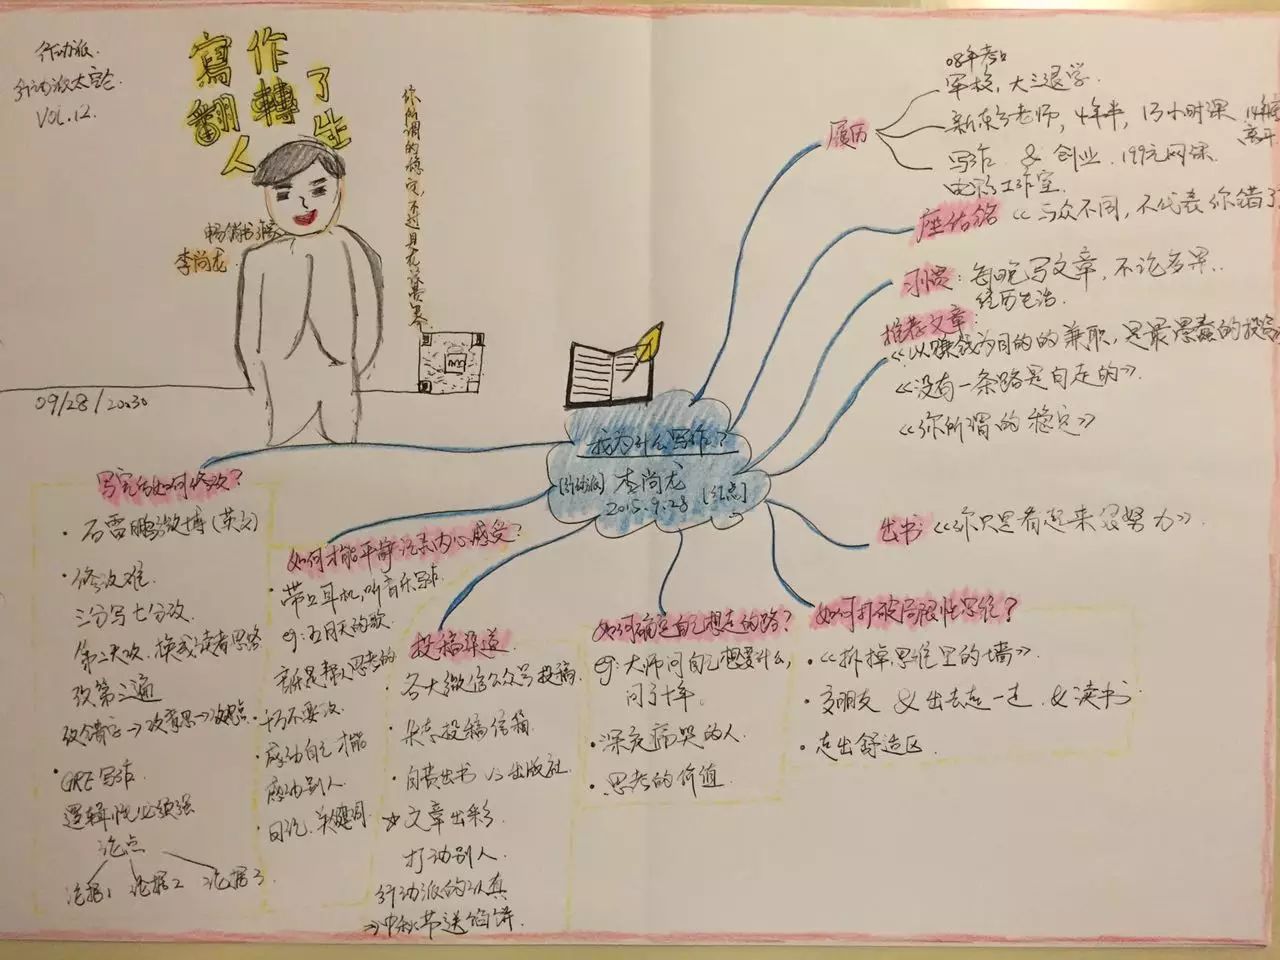 行动派
行动派太空仓
VOL.12.
寫作
翻轉了
人生
你所谓的稳定,不过是在浪费生命
畅销书作家
李尚龙
09/28/20:30
我为什么写作?
[行动派] 李尚龙 [红点]
2015.9.28
履历
08年考口
军校,大三退学
新东方老师,4年半,13小时课 14年底
离开
写作 & 创业,199元网课
电影工作室
座右铭 《与众不同,不代表你错了
习惯:每晚写文章,不论多累..
经历生活.
推荐文章:
《以赚钱为目的的兼职,是最愚蠢的投资
《没有一条路是白走的》
《你所谓的稳定》
出书 《你只是看起来很努力》.
如何打破局限性思维?
·《拆掉思维里的墙》
·交朋友 & 出去走一走 & 读书
·走出舒适区
如何确定自己想走的路?
eg:大师问自己想要什么,
问了十年.
·深夜痛哭的人
·思考的价值
投稿渠道
·各大微信公众号投稿
·杂志投稿信箱
·自费出书 vs 出版社
☆文章出彩
打动别人.
行动派的认真
→中秋节送馅饼
如何才能平静记录内心感受?
·带上耳机,听音乐写作.
eg:五月天的歌
音乐是帮人思考的
·切不要改
·感动自己才能
感动别人
·日记、关键词
写完后如何修改?
·石雷鹏微博(英文)
·修改难.
三分写七分改.
第二天改,换成读者思路
改第三遍
改错字→改意思→改观点
·GRE写作
逻辑性必须强
论点
论据1 论据2 论据3